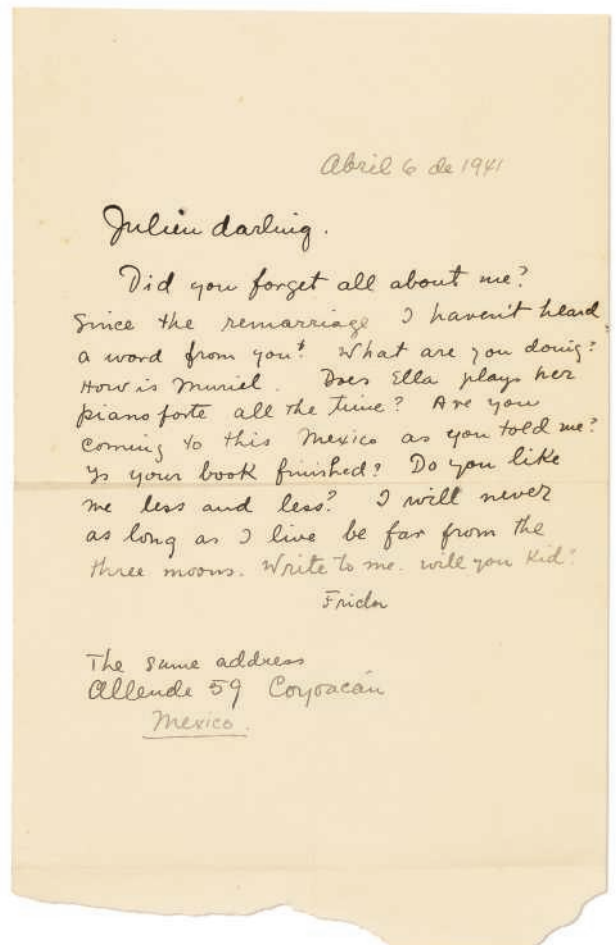 Abril 6 de 1941
Julien darling.
Did you forget all about me?
Since the remarriage I haven't heard
a word from you! What are you doing?
How is Muriel. Does Ella plays her
piano forte all the time? Are you
coming to this Mexico as you told me?
Is your book finished? Do you like
me less and less? I will never
as long as I live be far from the
three moons. Write to me. will you kid?
Frida
The same address
Allende 59 Coyoacán
Mexico.